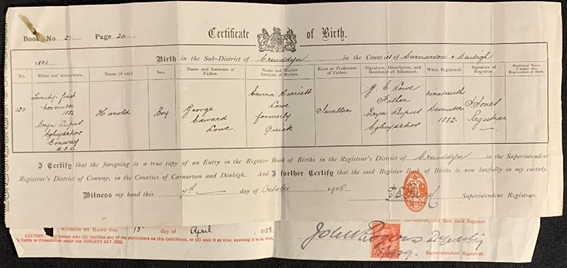 Book No. 2. Page 24
Certificate of Birth.
Birth in the Sub-District of Creuddyn in the Counties of Carnarvon & Denbigh
No. When and where born. Name (if any) Sex. Name and Surname of Father. Name and Maiden Surname of Mother. Rank or Profession of Father. Signature, Description, and Residence of Informant. When Registered. Signature of Registrar.
1882
120
Twenty first November 1882 Bryn Lupus Eglwysrhos Conway
Harold
Boy
George Edward Lowe
Emma Harriett Lowe formerly Quick
Jeweller
G. E. Lowe Father Bryn Lupus Eglwysrhos
Nineteenth December 1882.
Jones Registrar
I Certify that the foregoing is a true copy of an Entry in the Register Book of Births in the Registrar's District of Creuddyn in the Superintendent
Registrar's District of Conway, in the Counties of Carnarvon and Denbigh. And I further Certify that the said Register Book of Births is now lawfully in my custody.
Witness my hand this day of October 1905
Superintendent Registrar.
Witness my Hand this 13 day of April
John Rogers Deputy